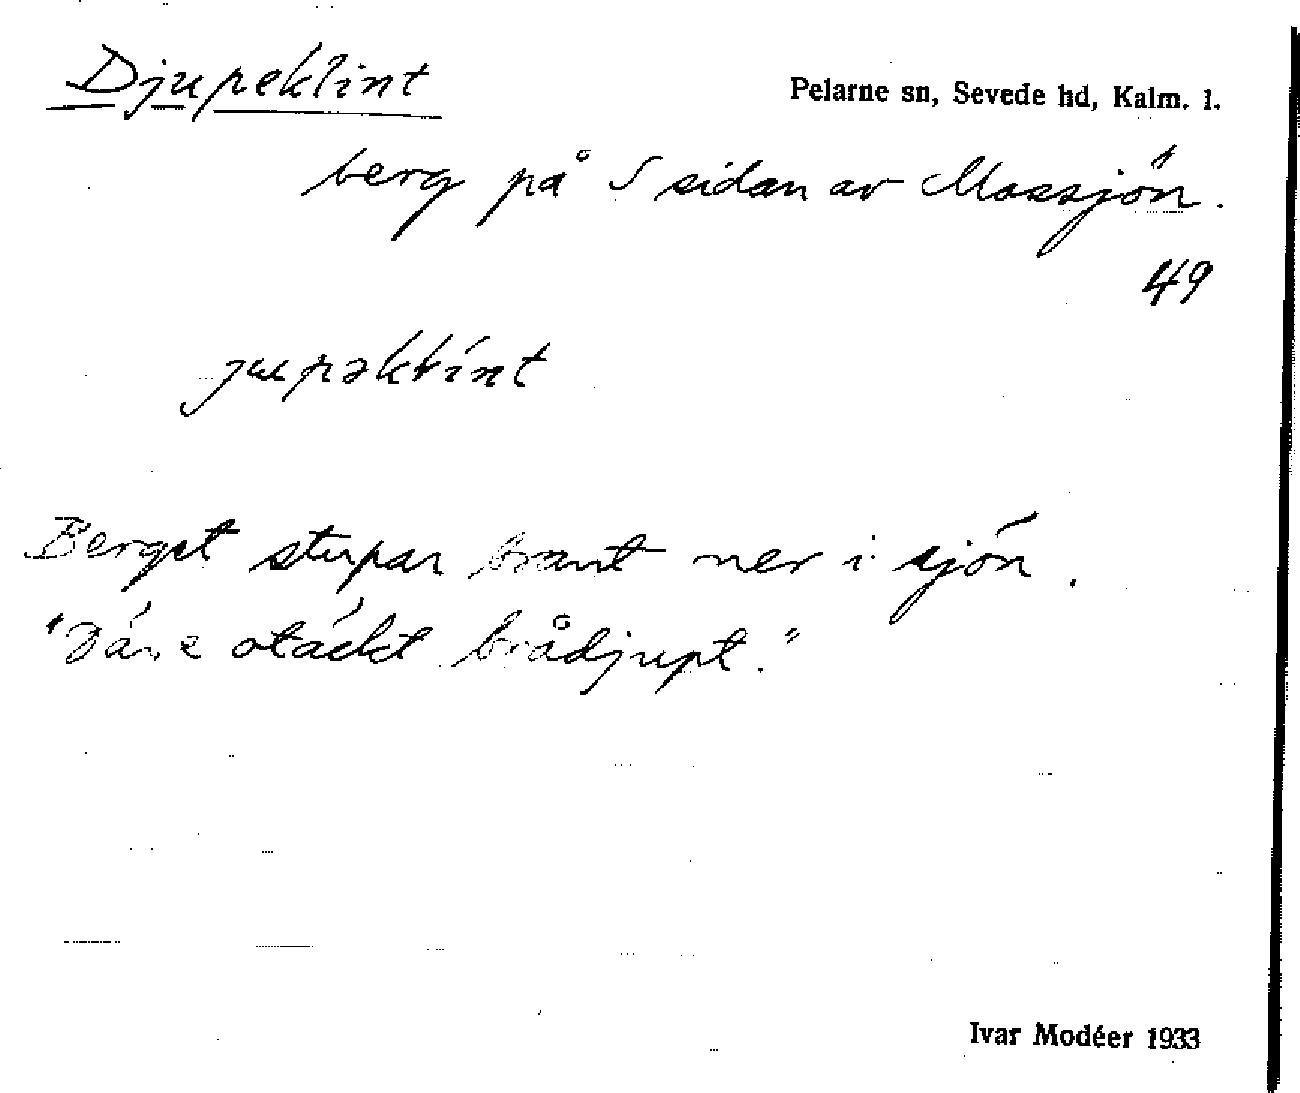 Djupeklint
Pelarne sn, Sevede hd, Kalm. l.
berg på S sidan av Mossjön.
49
jupəklint
Berget stupar brant ner i sjön.
"Där e otäckt brådjupt."
Ivar Modéer 1933